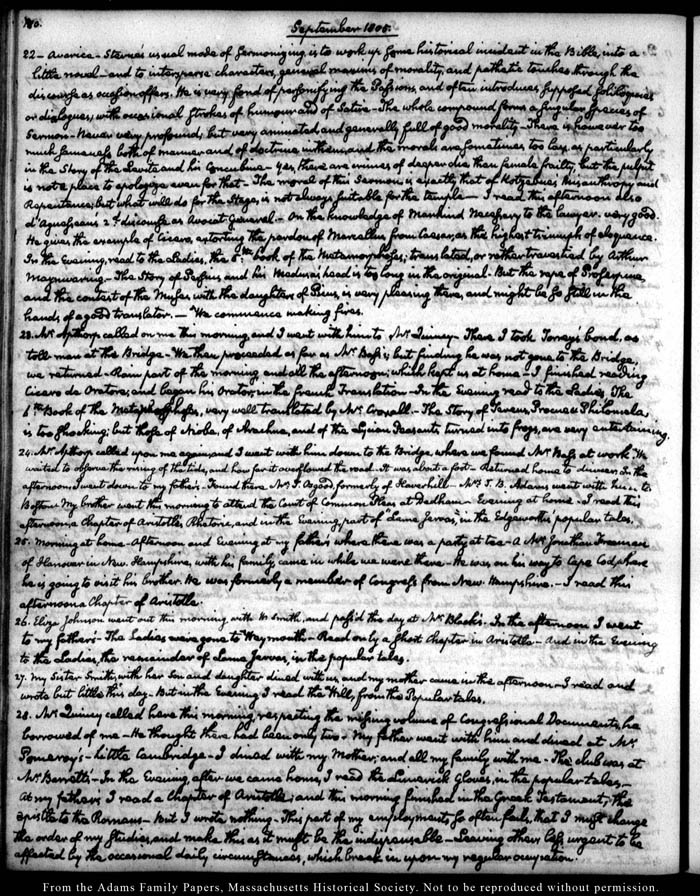 180.
September 1805.
22 – Avarice – Sterne's usual mode of Sermonizing is to work up some historical incident in the Bible, into a
little novel – and to intersperse characters, general maxims of morality, and pathetic touches through the
discourse as occasion offers. He is very fond of personifying the Passions, and often introduces supposed soliloquies
or dialogues, with occasional strokes of humour and of Satire – The whole compound forms a singular species of
Sermon – Never very profound, but very animated and generally full of good morality – There is however too
much both of manner and of doctrine in them, and the morals are sometimes too lax, as particularly
in the Story of the Levite and his Concubine – Yes, there are crimes of deeper die than female frailty, but the pulpit
is not a place to apologize even for that – The moral of this Sermon is exactly that of Kotzebue's Misanthropy and
Repentance; but what will do for the Stage, is not always suitable for the temple – I read this afternoon also
d'Aguesseau's 2d. discourse as Avocat General – On the knowledge of Mankind necessary to the lawyer. very good.
He gives the example of Cicero, extorting the pardon of Marcellus from Caesar, as the highest triumph of eloquence.
In the Evening, read to the Ladies, the 5th. book of the Metamorphoses; translated, or rather travestied by Arthur
Maynwaring – The Story of Perseus and his Medusa's head is too long in the original – But the rape of Proserpine
and the contest of the Muses with the daughters of Pierus, is very pleasing there, and might be so still in the
hands of a good translator. – We commence making fires.
23. Mr. Apthorp called on me this morning and I went with him to Mr. Quincy – There I took Torrey's bond, as
toll man at the Bridge – We then proceeded as far as Mr. Bass's; but finding he was not gone to the Bridge,
we returned – Rain part of the morning and all the afternoon; which kept us at home – I finished reading
Cicero de Oratore, and began his Orator, in the french Translation – In the Evening read to the Ladies The
6th. Book of the Metamorphoses, very well translated by Mr. Croxall – The Story of Tereus, Procne & Philomela,
is too shocking; but those of Niobe, of Arachne, and of the Lycian Peasants turned into frogs, are very entertaining.
24. Mr. Apthorp called upon me again; and I went with him down to the Bridge, where we found Mr. Bass at work. We
waited to observe the rising of the tide, and how far it overflowed the road. It was about a foot – Returned home to dinner. In the
afternoon I went down to my father's – Found there Mr. P. Osgood, formerly of Haverhill – Mrs. T. B. Adams went with him to
Boston. My brother went this morning to attend the Court of Common Pleas at Dedham – Evening at home – I read this
afternoon a Chapter of Aristotle's Rhetoric, and in the Evening, part of "Lame Jervas," in the Edgeworth's popular tales.
25. Morning at home – Afternoon and Evening at my father's where there was a party at tea – A Mr. Jonathan Freeman
of Hanover in New Hampshire, with his family, came in while we were there – He was on his way to Cape Cod, where
he is going to visit his brother. He was formerly a member of Congress from New Hampshire. – I read this
afternoon a Chapter of Aristotle.
26. Eliza Johnson went out this morning with Mrs. Smith, and pass'd the day at Mr. Black's. In the afternoon I went
to my father's – The Ladies were gone to Weymouth – Read only a short Chapter in Aristotle – And in the Evening
to the Ladies, the remainder of Lame Jervas, in the popular tales.
27. My Sister Smith, with her Son and daughter dined with us, and my mother came in the afternoon – I read and
wrote but little this day – But in the Evening I read the Will, from the Popular tales.
28. Mr. Quincy called here this morning, respecting the missing volume of Congressional Documents, he
borrowed of me – He thought there had been only two – My father went with him and dined at Mr.
Pomeroy's – Little Cambridge – I dined with my Mother; and all my family with me – The club was at
Mr. Barrett's – In the Evening, after we came home, I read the Limerick Gloves, in the popular tales –
At my father's I read a Chapter of Aristotle; and this morning finished in the Greek Testament, the
epistle to the Romans – But I wrote nothing – This part of my employments, so often fails, that I must change
the order of my Studies, and make this as it must be the indispensable – Leaving others less urgent to be
affected by the occasional daily circumstances, which break in upon my regular occupation.
From the Adams Family Papers, Massachusetts Historical Society. Not to be reproduced without permission.